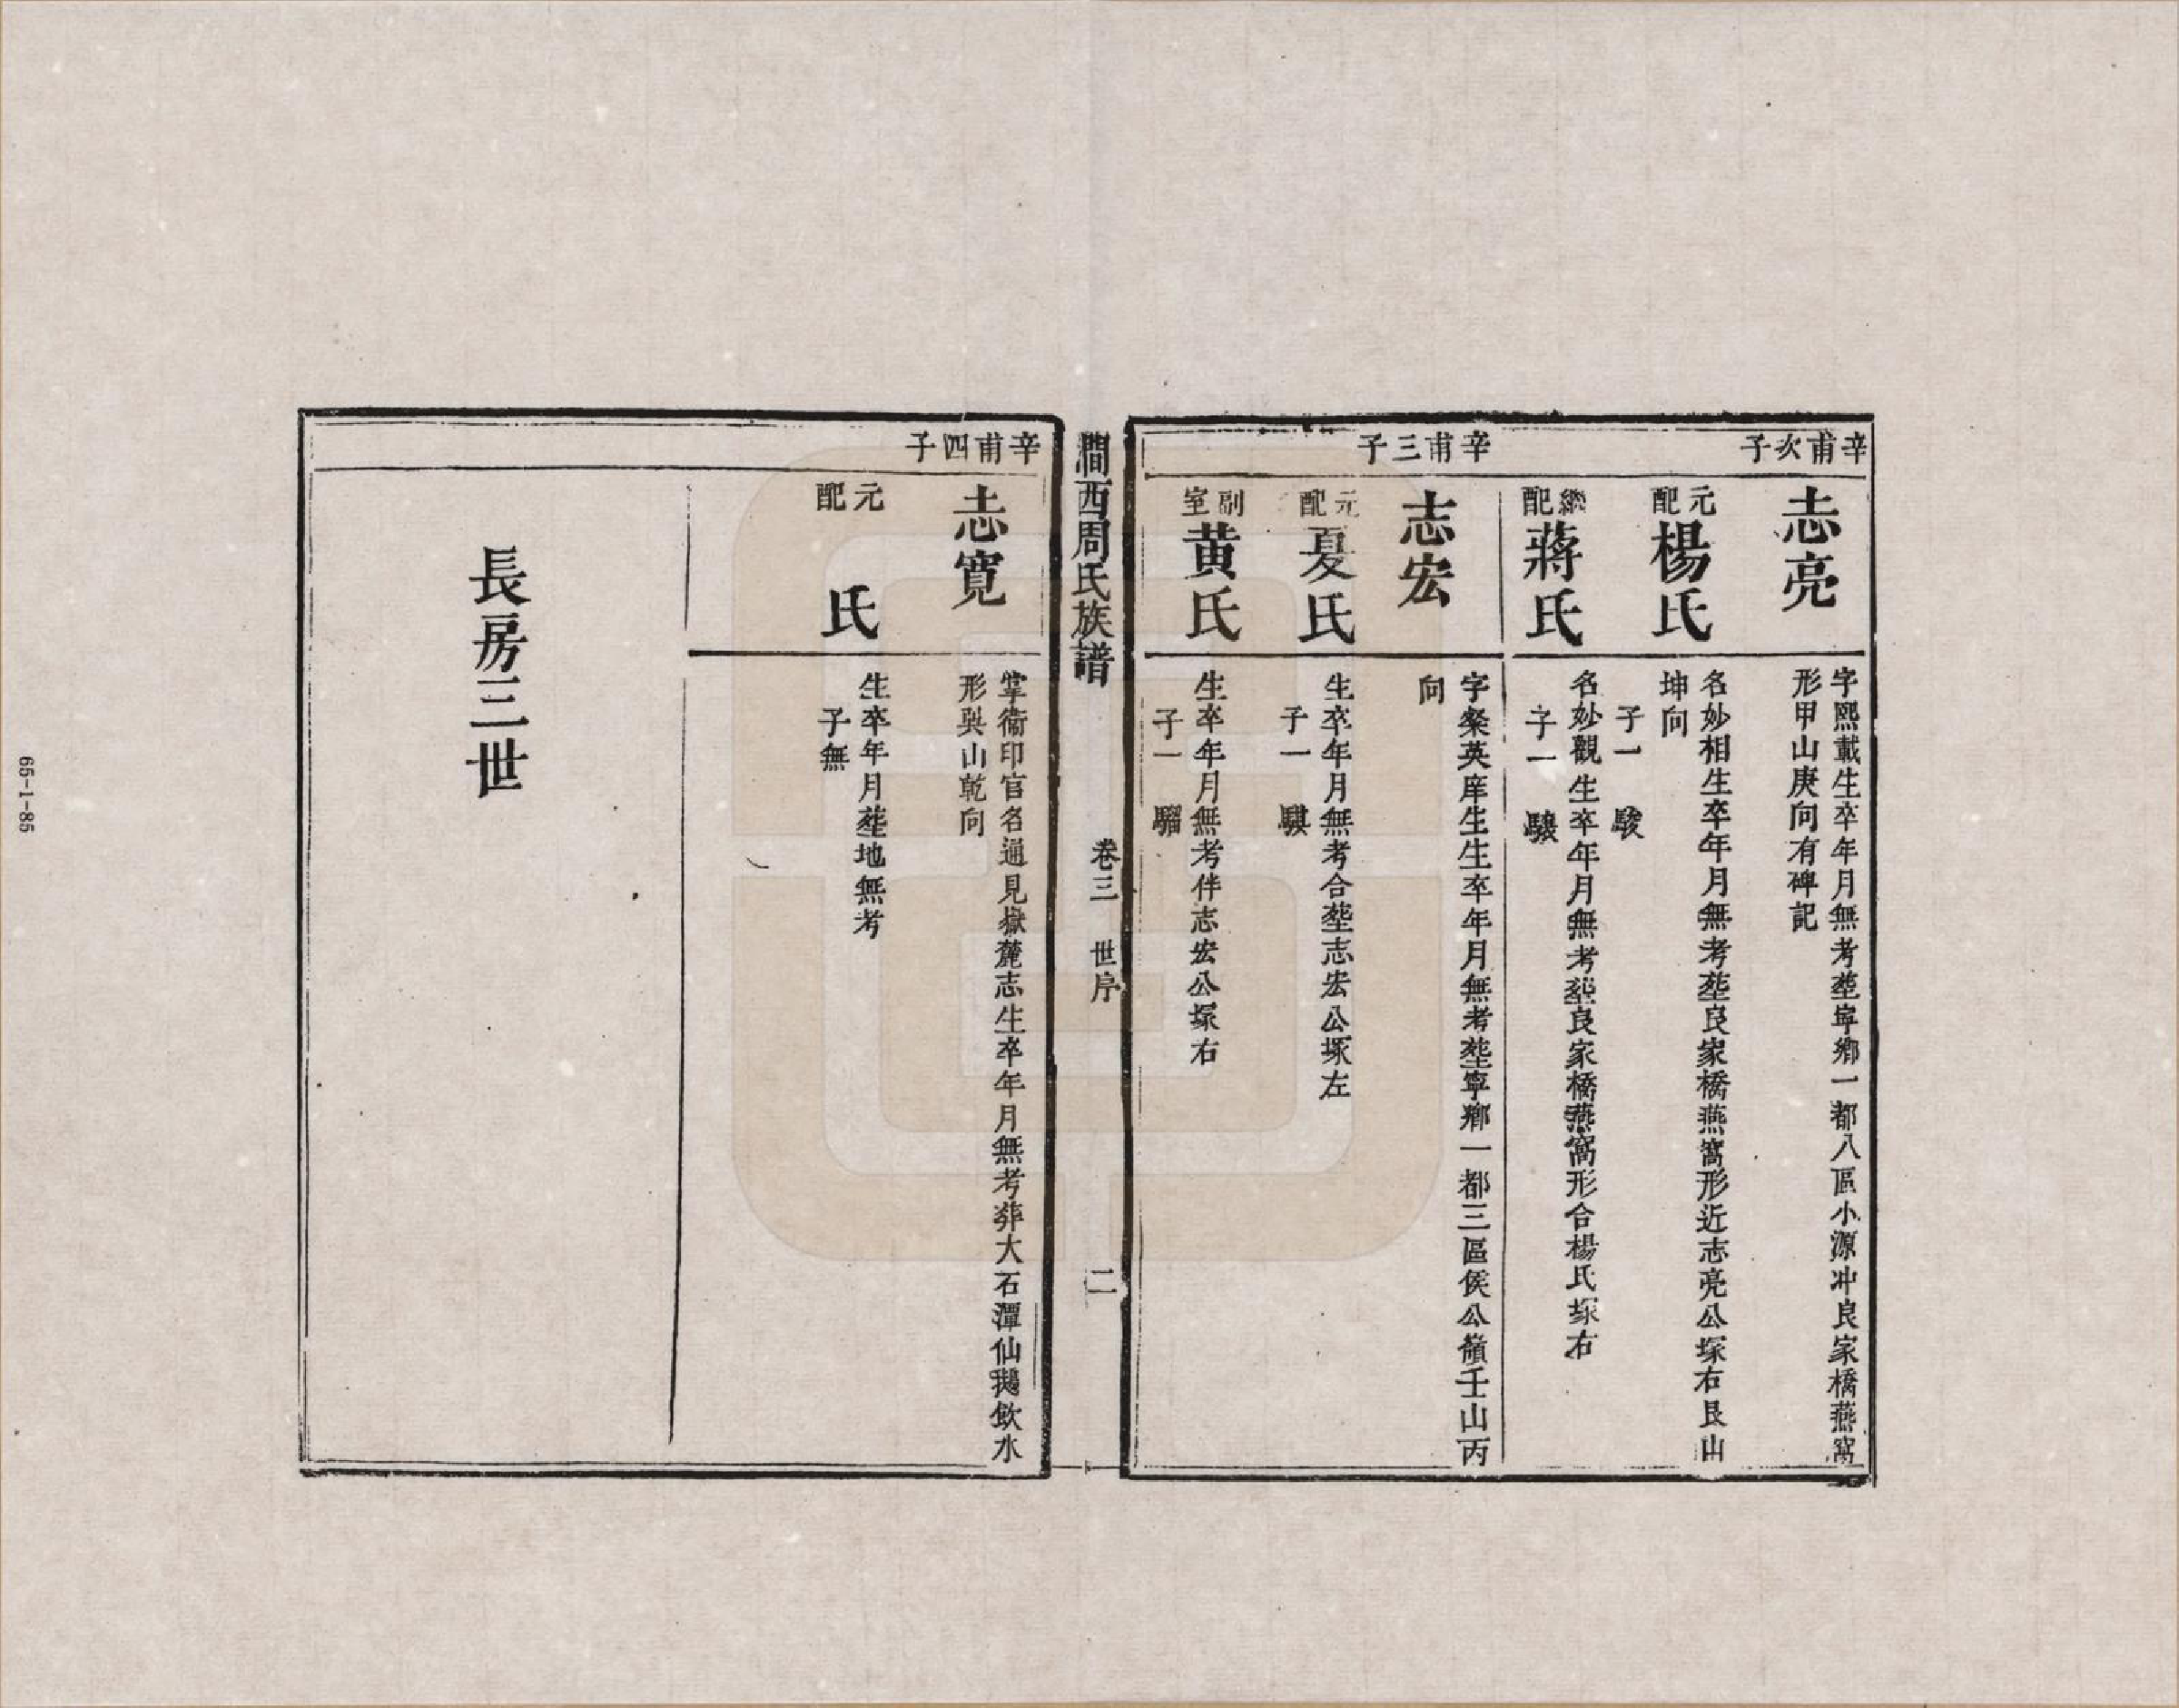 辛甫次子
志亮
字熙載生卒年月無考塟寧鄉一都八區小源冲良家橋燕窩
形甲山庚向有碑記
元配
楊氏
名妙相生卒年月無考塟良家橋燕窩形近志亮公塚右艮山
坤向
子一　駿
繼配
蔣氏
名妙觀生卒年月無考塟良家橋燕窩形合楊氏塚右
子一　驤
辛甫三子
志宏
字粲英庠生生卒年月無考塟寧鄉一都三區侯公嶺壬山丙
向
元配
夏氏
生卒年月無考合塟志宏公塚左
子一　騏
副室
黄氏
生卒年月無考伴志宏公塚右
子一　騮
澗西周氏族譜
卷三　世序
二
辛甫四子
志寬
掌衞印官名通見嶽麓志生卒年月無考葬大石潭仙鵝飲水
形巽山乾向
元配
氏
生卒年月塟地無考
子無
長房三世
65-1-85